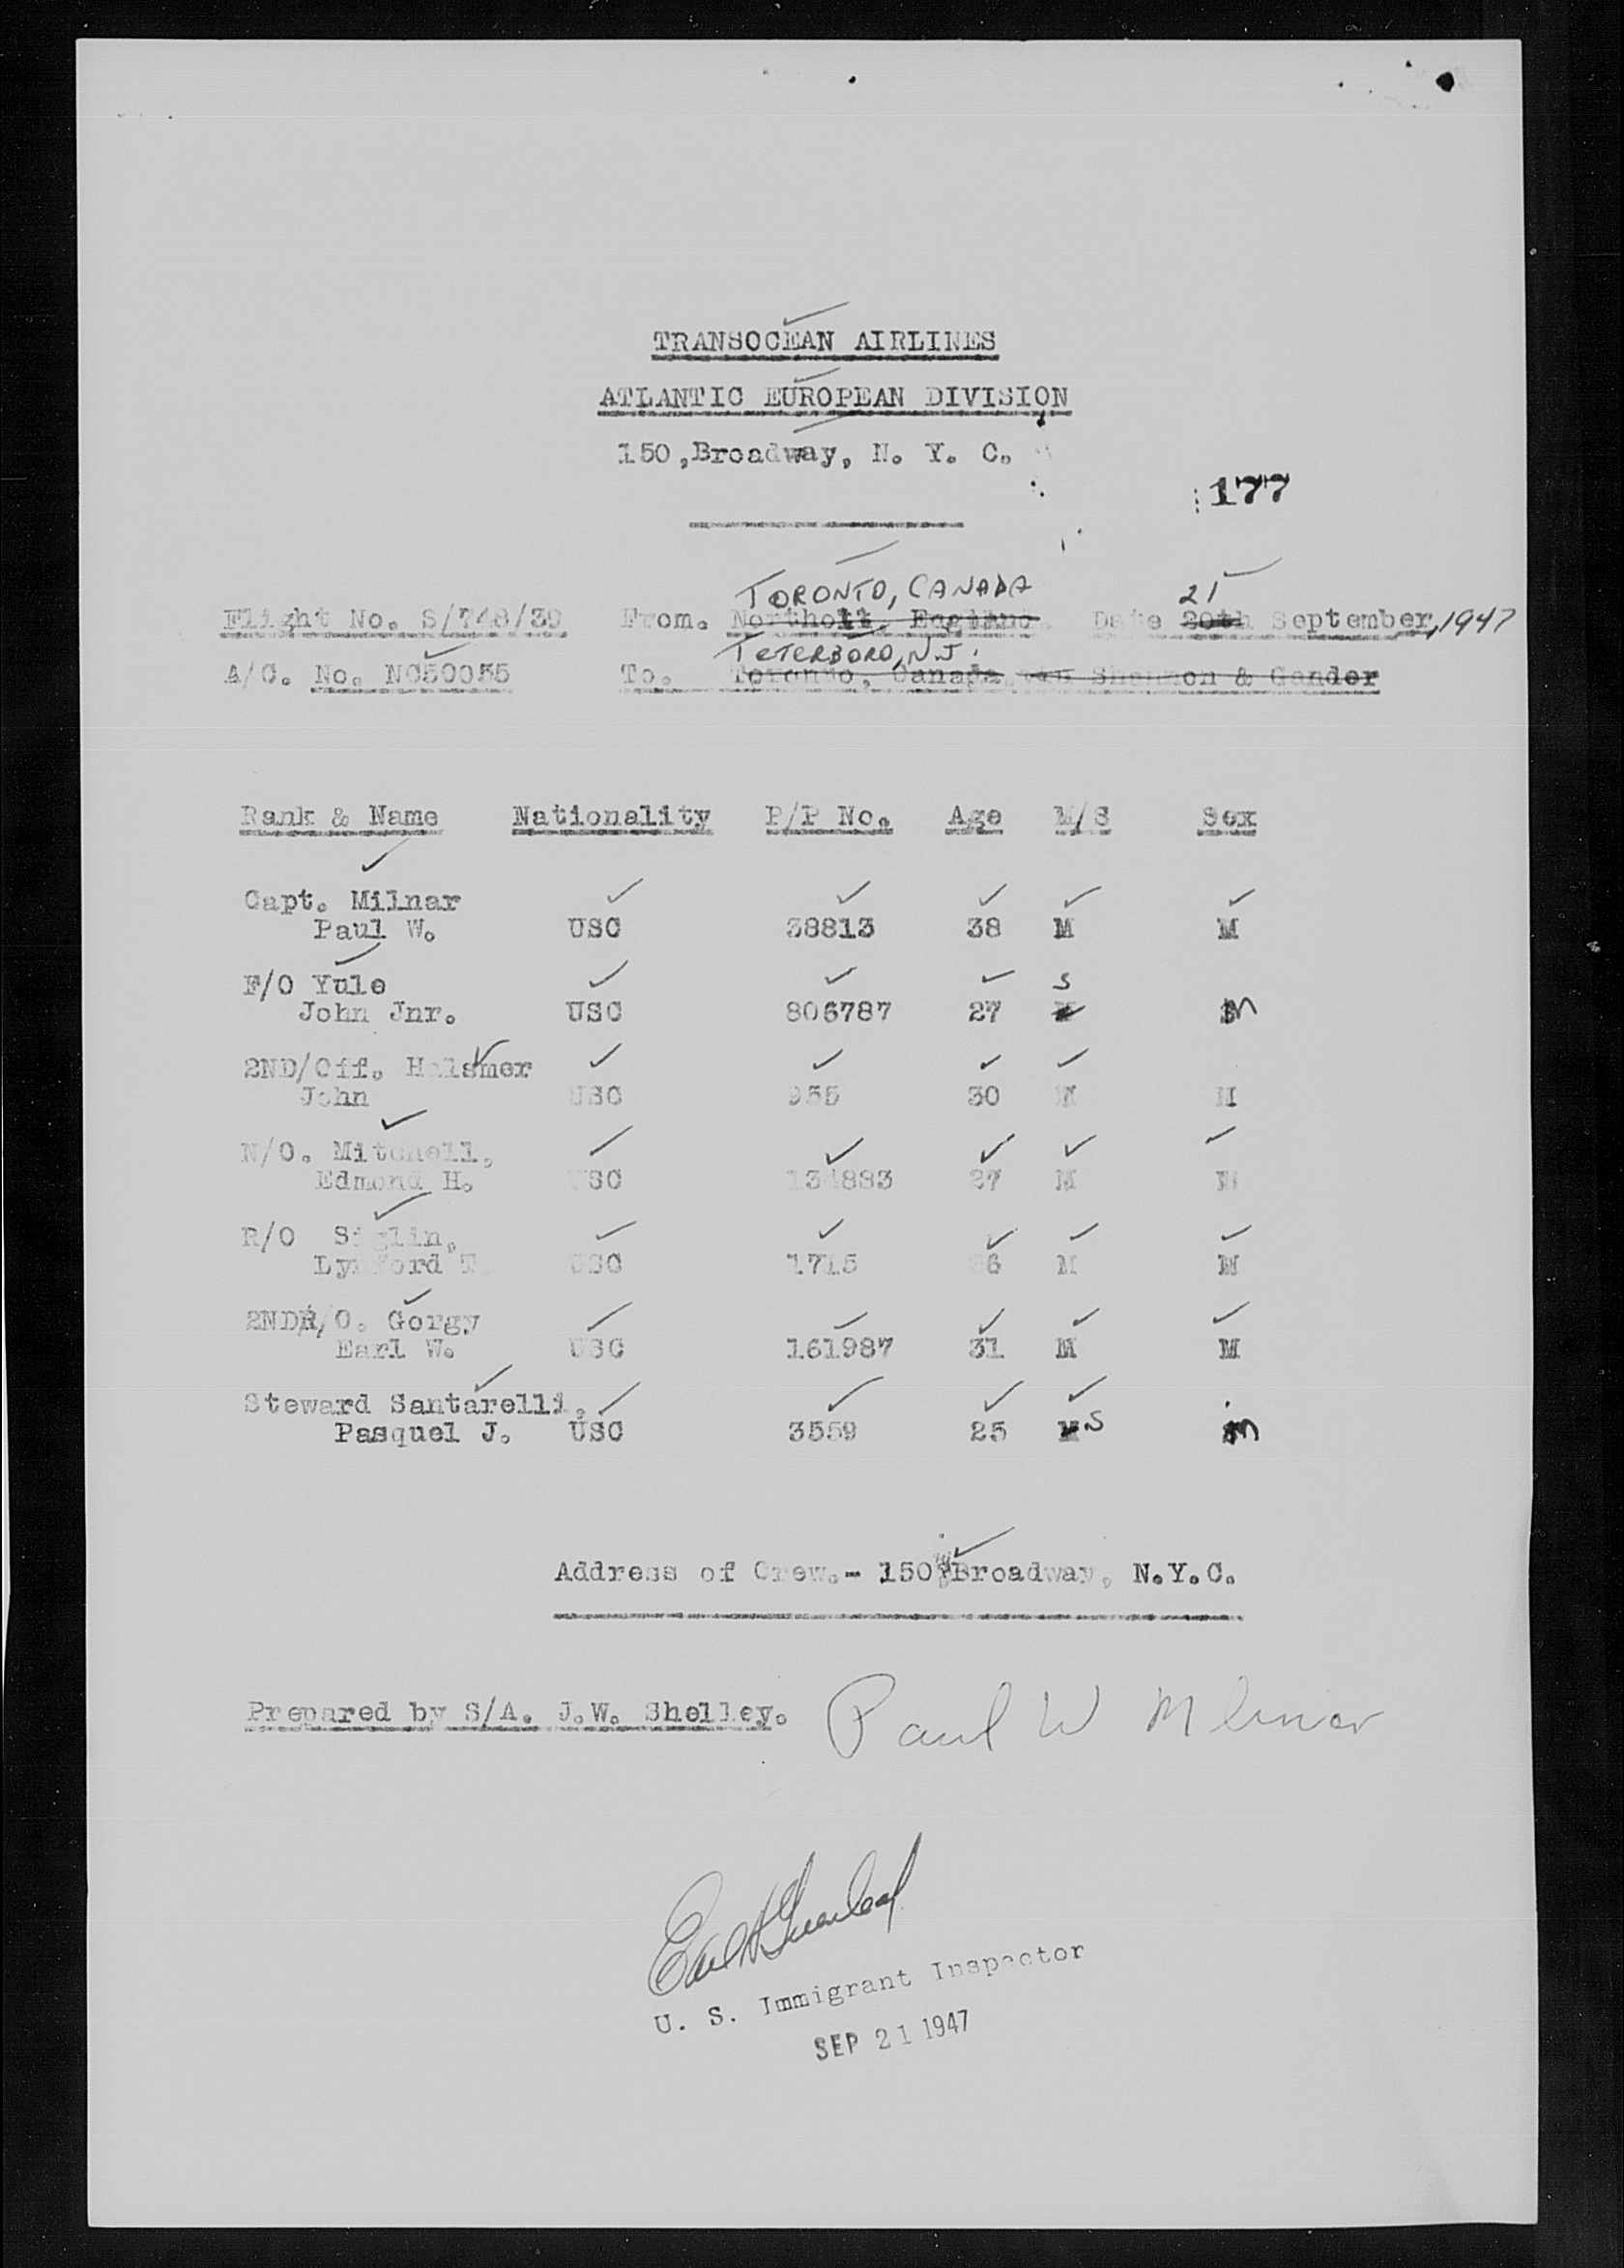 TRANSOCEAN AIRLINES
ATLANTIC EUROPEAN DIVISION
150,Broadway, N. Y. C.
177
TORONTO, CANADA 21
Flight No. S/748/39 From. Northolt, England. Date 20th September,1947
TETERBORO, N.J.
A/C. No. NC50035 To. Toronto, Canada via Shannon & Gander
Rank & Name Nationality P/P No. Age M/S Sex
Capt. Milnar
Paul W. USC 38813 38 M M
F/O Yule S
John Jnr. USC 806787 27 M
2ND/Off. Halsmer
John USC 935 30 M M
N/O. Mitchell,
Edmond H. USC 134883 27 M M
R/O Siglin,
Lynford T USC 1715 6 M M
2NDR/O. Gorgy
Earl W. USC 161987 31 M M
Steward Santarelli,
Pasquel J. USC 3559 25 S M
Address of Crew.- 150 Broadway, N.Y.C.
Prepared by S/A. J.W. Shelley. Paul W Mlinar
U. S. Immigrant Inspector
SEP 21 1947